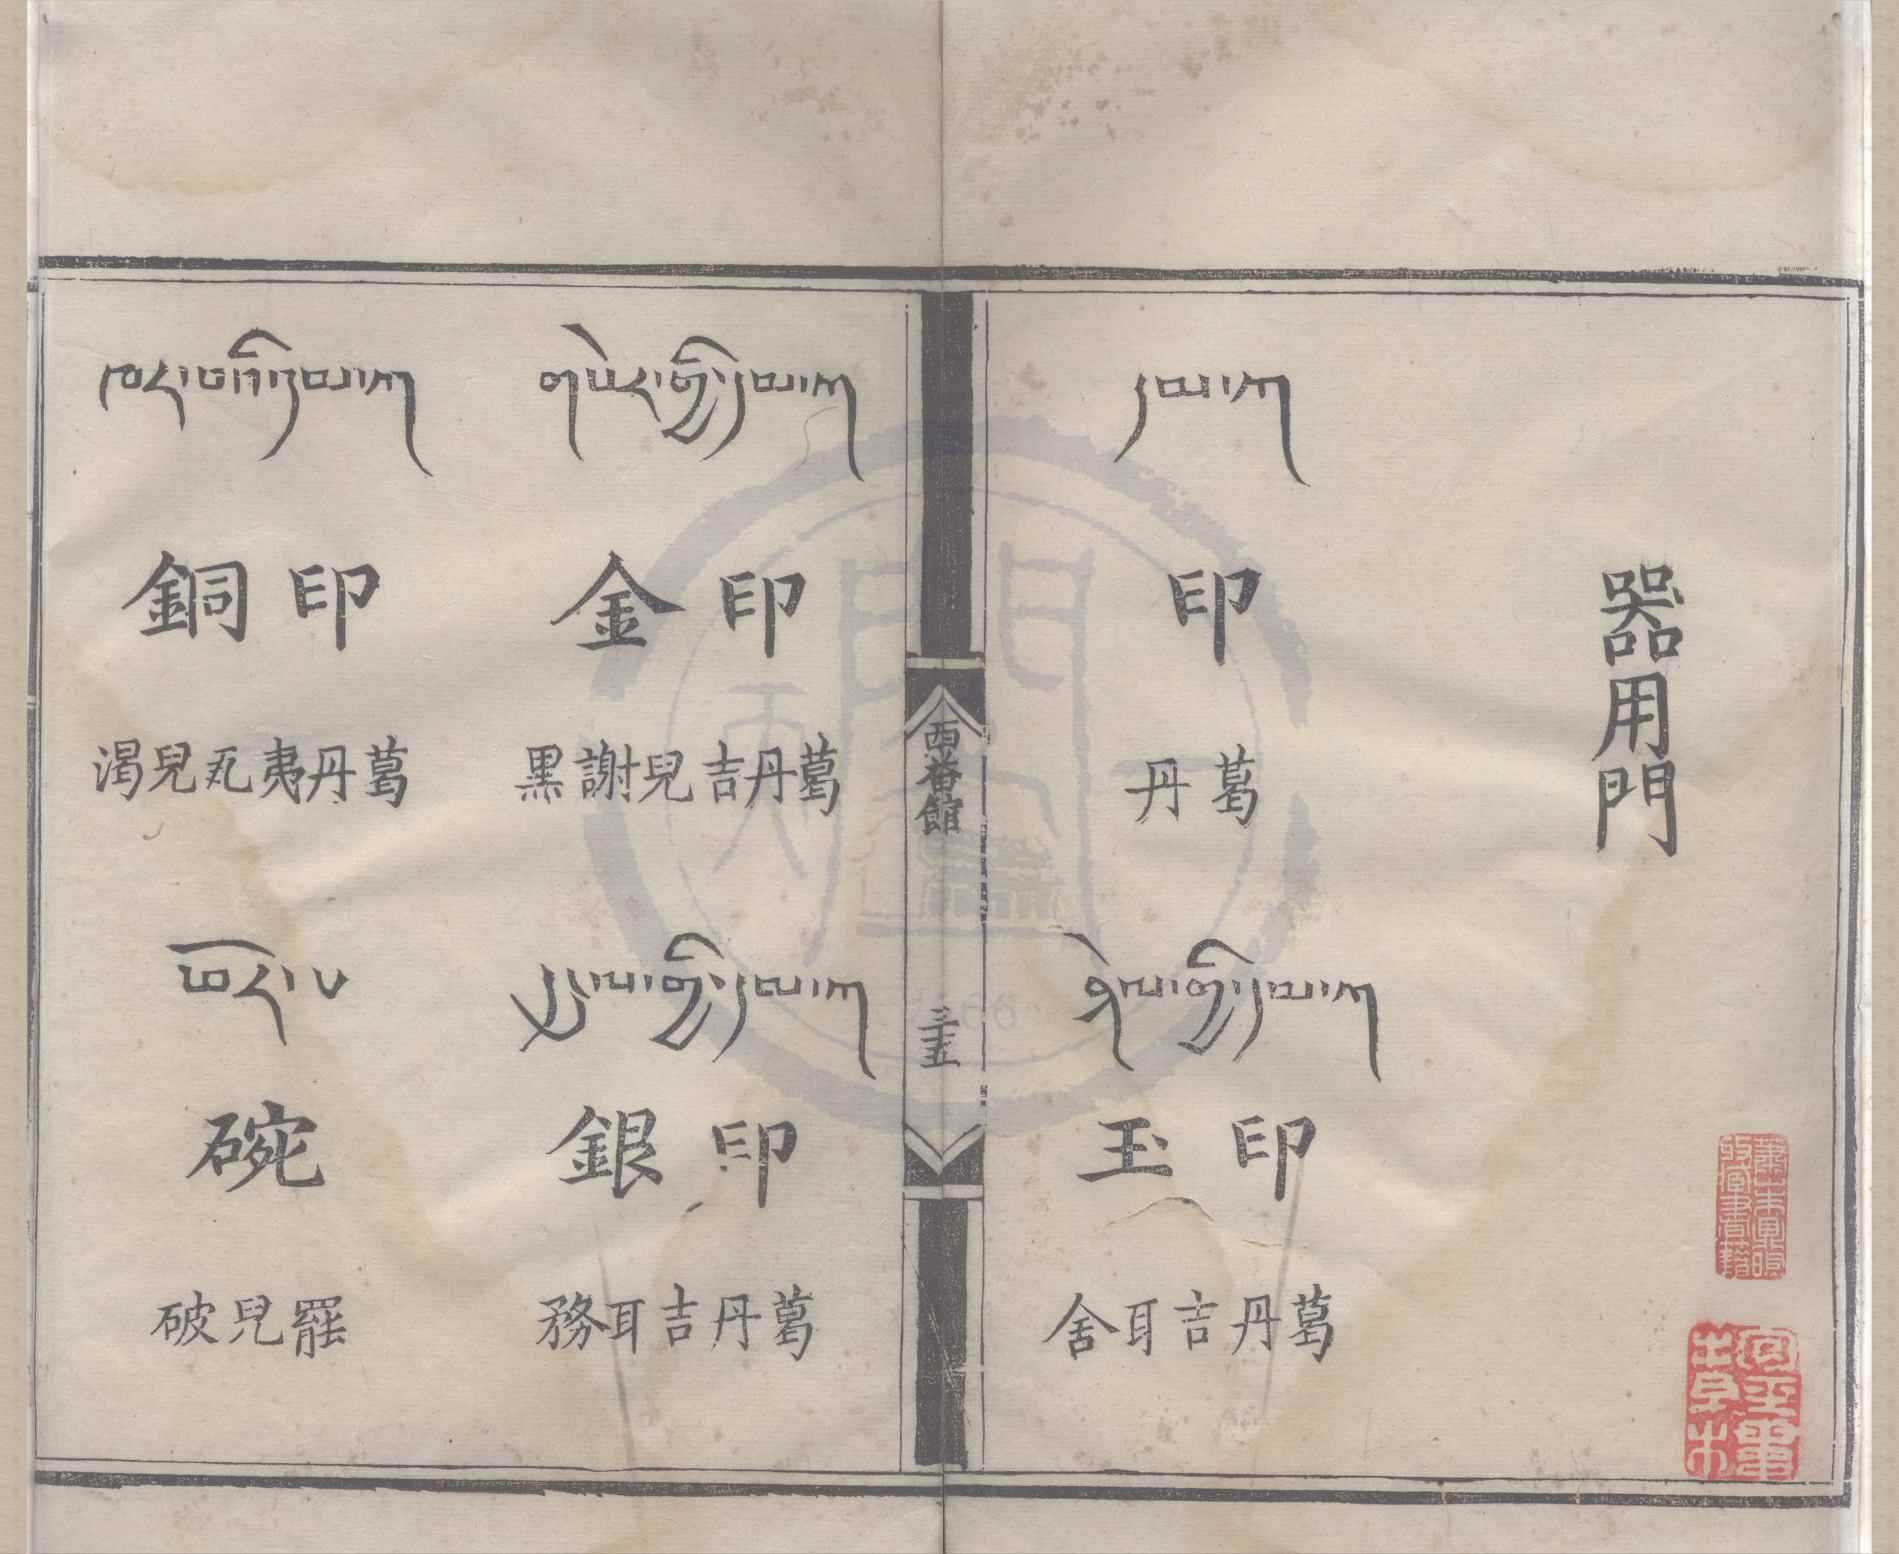 器用門
དམ་ཀ
印
丹葛
ཤེལ་གྱི་དམ་ཀ
玉印
舍耳吉丹葛
西番館
三十五
གསེར་གྱི་དམ་ཀ
金印
黑謝兒吉丹葛
དངུལ་གྱི་དམ་ཀ
銀印
務耳吉丹葛
ཁར་བའི་དམ་ཀ
銅印
渴兒瓦夷丹葛
ཕོར་པ
碗
破兒罷